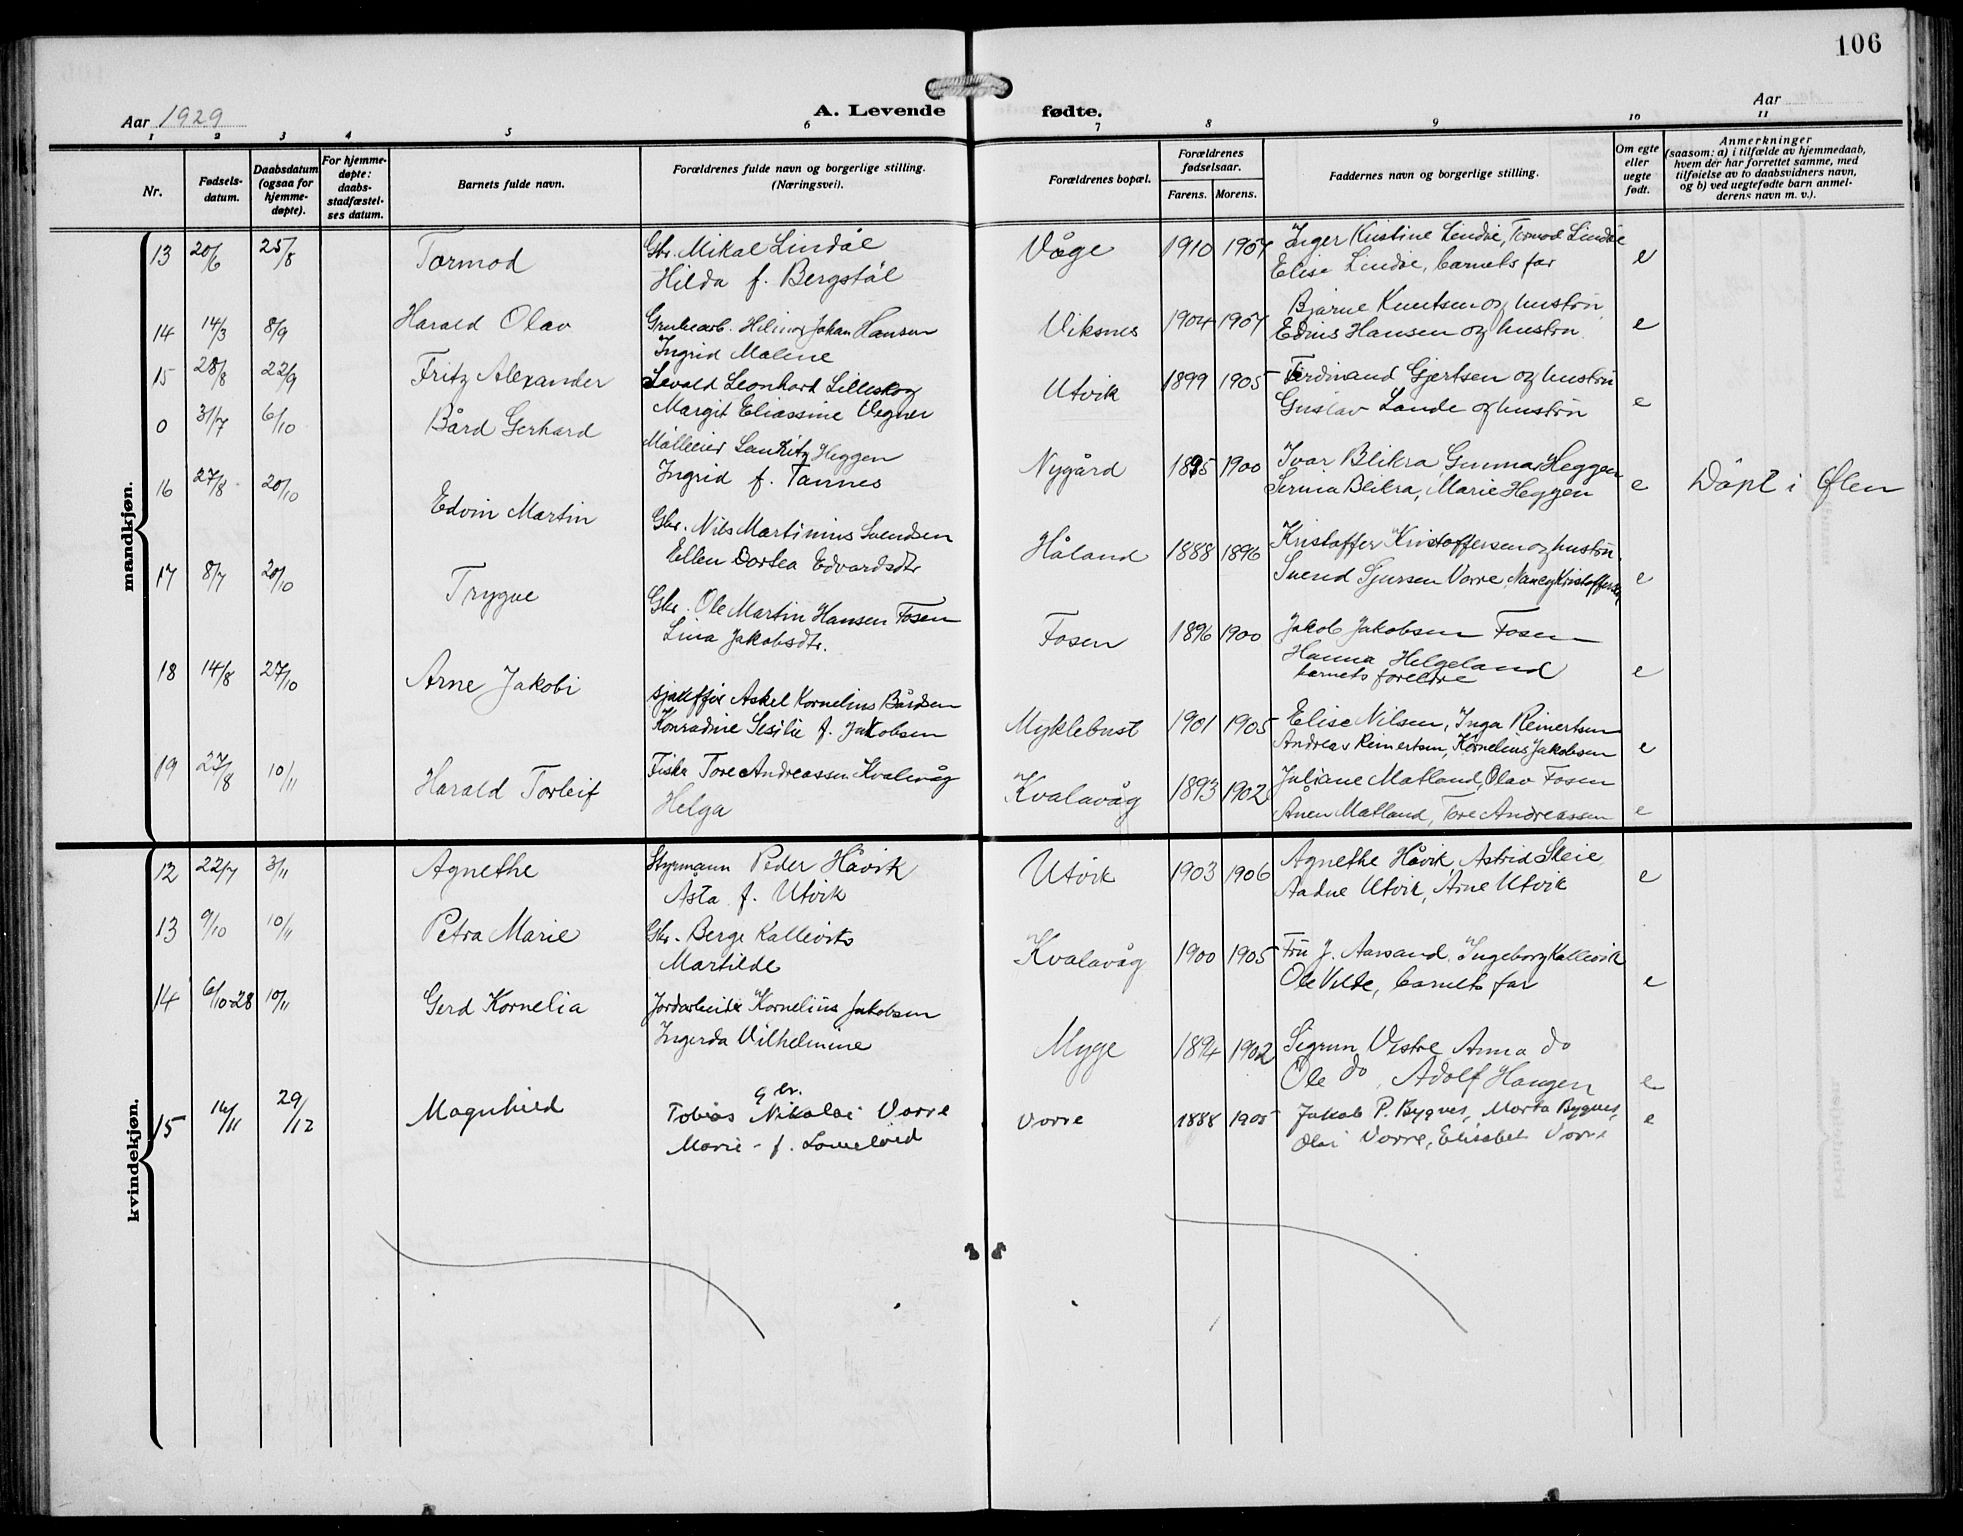 106
Aar 1929
A. Levende fødte.
Aar
1 2 3 4 5 6 7 8 9 10 11
Nr.
Fødsels-
datum.
Daabsdatum
(ogsaa for
hjemme-
døpte).
For hjemme-
døpte:
daabs-
stadfæstel-
ses datum.
Barnets fulde navn.
Forældrenes fulde navn og borgerlige stilling.
(Næringsvei).
Forældrenes bopæl.
Forældrenes
fødselsaar.
Farens. Morens.
Faddernes navn og borgerlige stilling.
Om egte
eller
uegte
født.
Anmerkninger
(saasom: a) i tilfælde av hjemmedaab,
hvem der har forrettet samme, med
tilføielse av to daabsvidners navn,
og b) ved uegtefødte barn anmel-
derens navn m. v.).
mandkjøn.
13 20/6 25/8 Tormod Gbr. Mikal Lindøe Våge 1910 1907 Inger Kristine Lindøe, Tormod Lindøe e
Hilda f. Bergstøl Elise Lindøe, barnets far
14 14/3 8/9 Harald Olav Grubearb. Johan Hansen Viksnes 1904 1907 Bjarne Knutsen og hustru e
Ingrid Malene Edvins Hansen og hustru
15 28/8 22/9 Fritz Alexander Sevald Leonhard Lilleskog Utvik 1899 1905 Ferdinand Gjertsen og hustru e
Margit Eliassine Vegner Gustav Lande og hustru
0 31/7 6/10 Bård Gerhard Lauritz Heggen Nygård 1895 1900 Ivar Blikra, Gunnar Heggen e Döpt i Ølen
Ingrid f. Tannes Serina Blikra, Marie Heggen
16 27/8 20/10 Edvin Martin Gbr. Nils Martinius Svendsen Håland 1888 1896 Kristoffer Kristoffersen og hustru e
Ellen Dortea Edvardsdtr Svend Sjursen Vorre, Nancy Kristoffersen
17 8/7 20/10 Trygve Gbr. Ole Martin Hansen Fosen Fosen 1896 1900 Jakob Jakobsen Fosen e
Lina Jakobsdtr. Hanna Helgeland
barnets foreldre
18 14/8 27/10 Arne Jakobi sjauffør Askel Kornelius Bårdsen Myklebust 1901 1905 Elise Nilsen, Inga Reinertsen e
Konradine Sesilie f. Jakobsen Andreas Reinertsen, Kornelius Jakobsen
19 27/8 10/11 Harald Torleif Fisker Tore Andreassen Kvalavåg Kvalavåg 1893 1902 Juliane Matland, Olav Fosen e
Helga Anen Matland, Tore Andreassen
kvindekjøn.
12 22/7 3/11 Agnethe Styrmann Peder Håvik Utvik 1903 1906 Agnethe Håvik, Astrid Skeie e
Åsta f. Utvik Aadne Utvik, Arne Utvik
13 9/10 10/11 Petra Marie Gbr. Berge Kallevik Kvalavåg 1900 1905 Fru J. Aarsand, Ingeborg Kallevik e
Martilde Ole Velde, barnets far
14 6/10-28 10/11 Gerd Kornelia Jordarbeider Kornelius Jakobsen Myge 1894 1902 Sigrun Vestre Anna do e
Ingerda Vilhelmine Ole do, Adolf Haugen
15 14/11 29/12 Magnhild Gbr.
Tobias Nikolai Vorre Vorre 1888 1905 Jakob P. Bygnes, Marta Bygnes, e
Marie - f. Olai Vorre, Elisabet Vorre